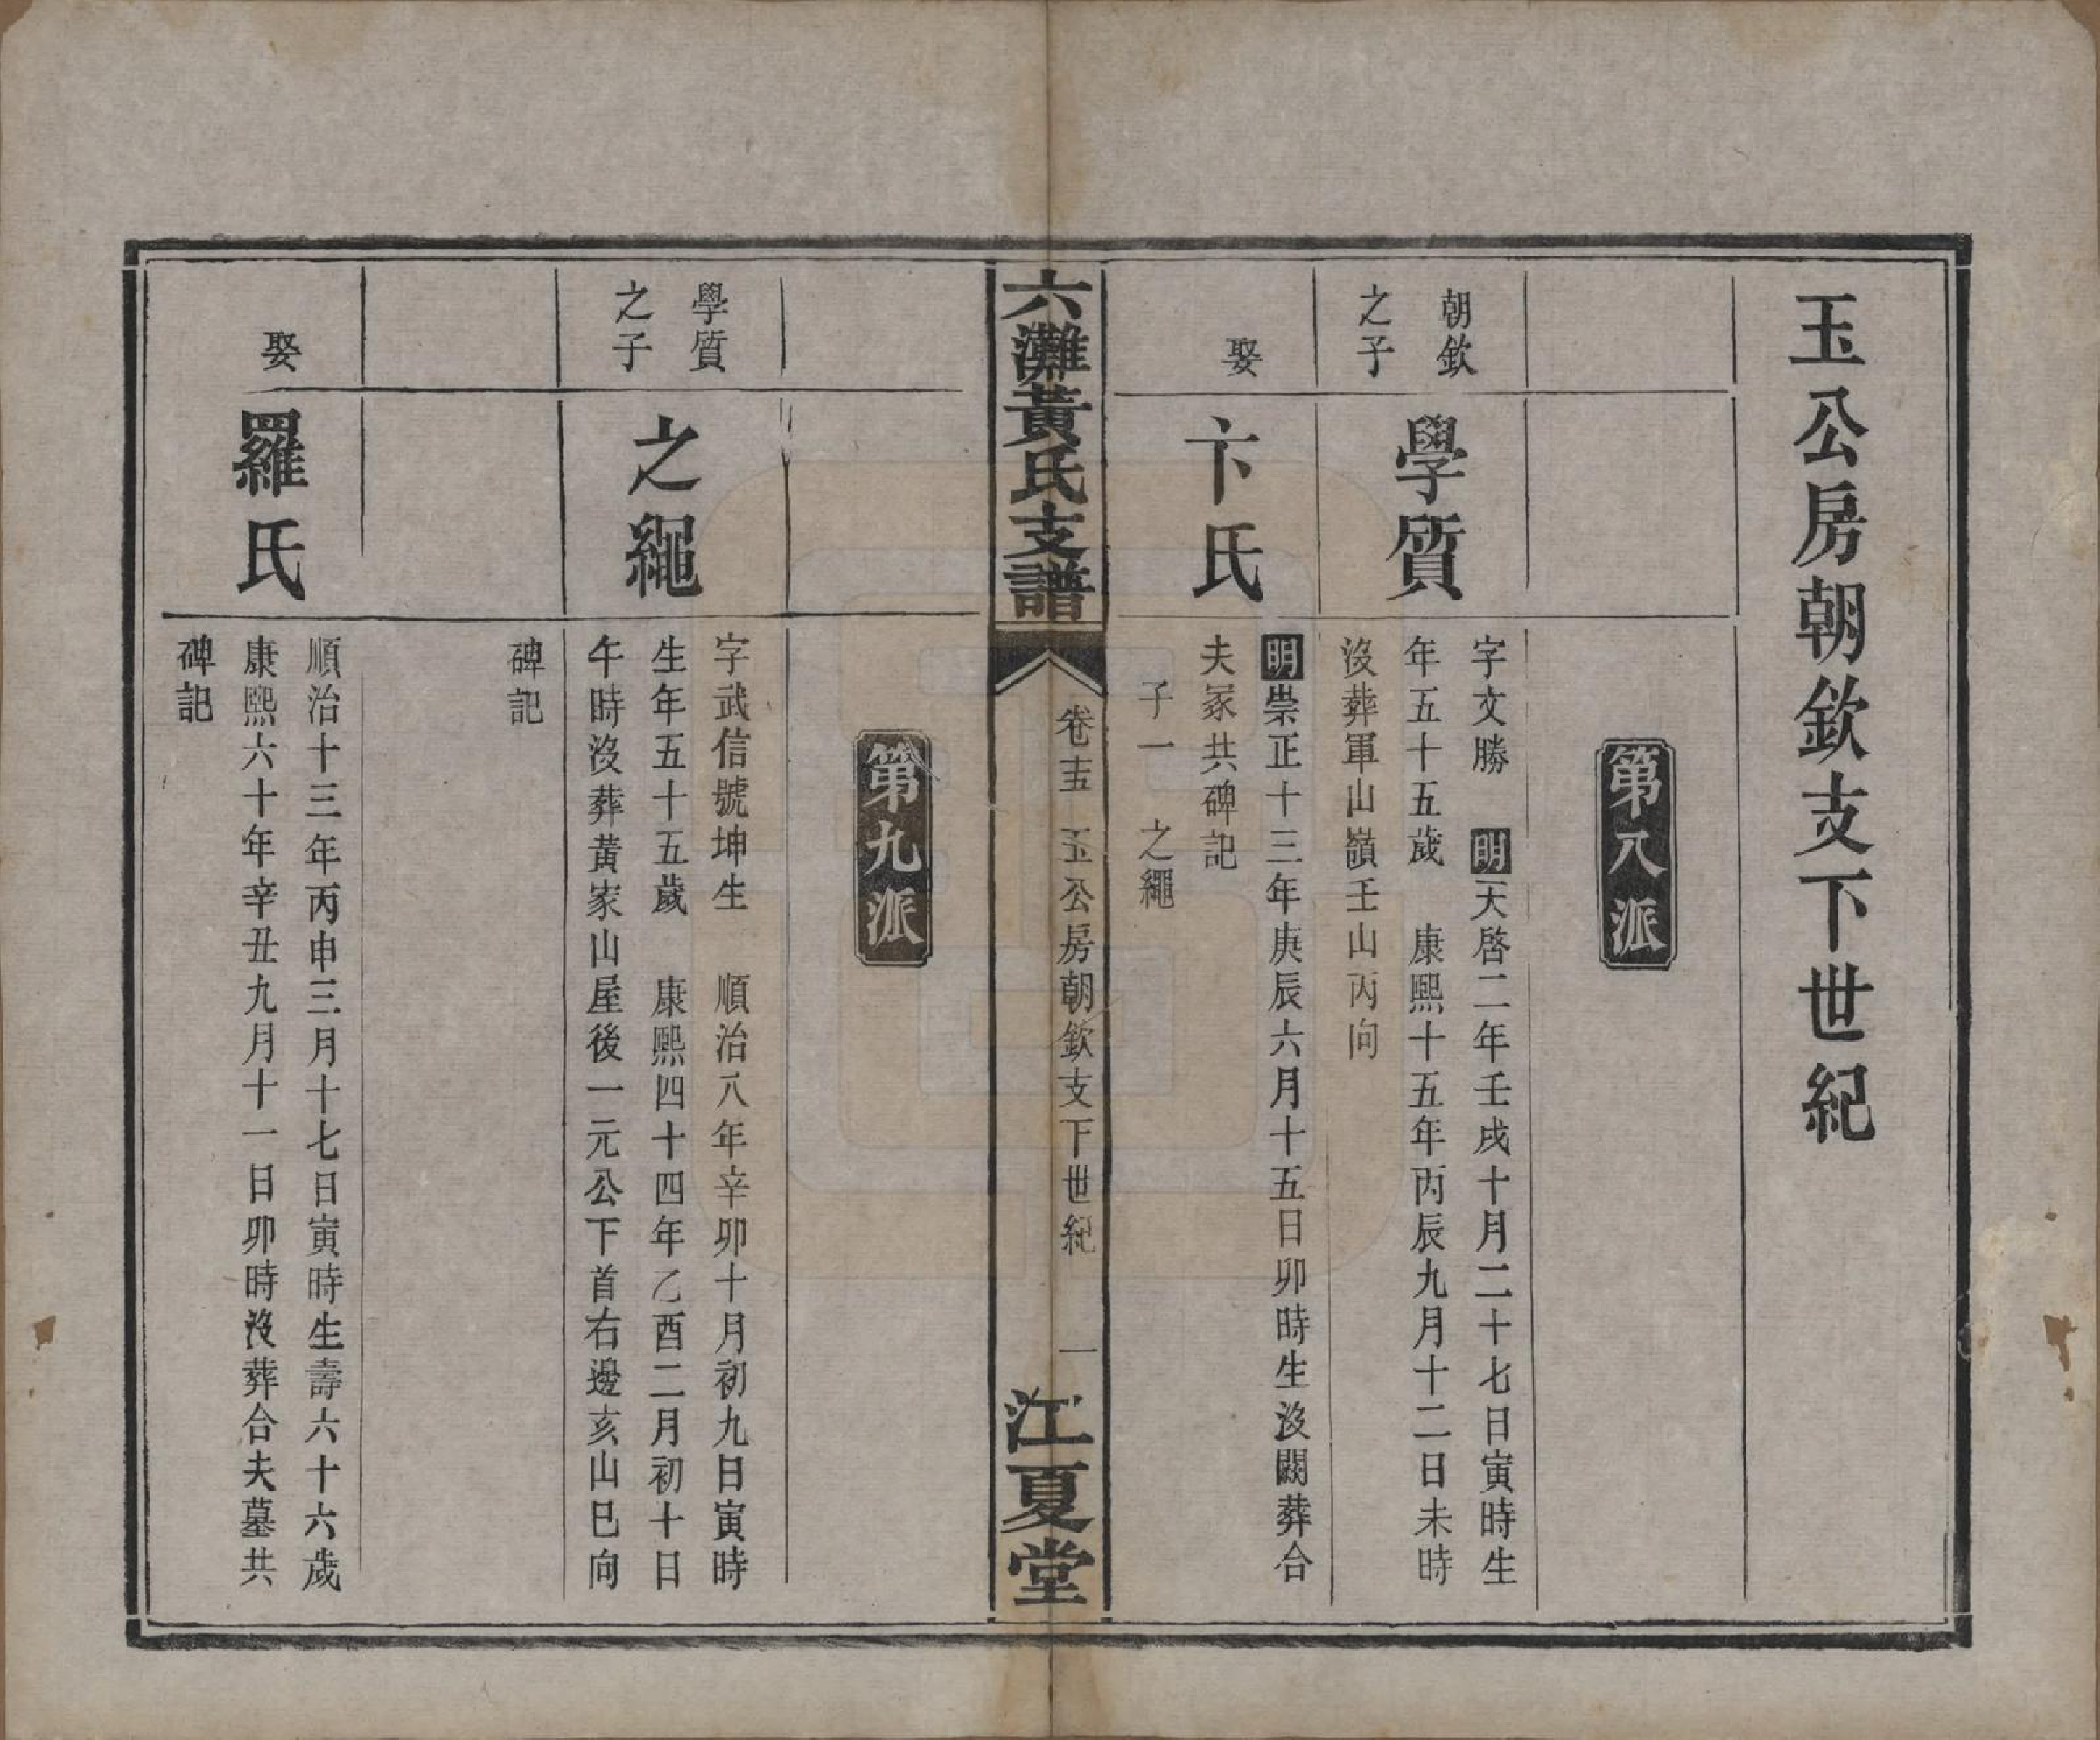 玉公房朝欽支下世紀
第八派
朝欽
之子
學質
字文勝　明天啓二年壬戌十月二十七日寅時生
年五十五歲　康熙十五年丙辰九月十二日未時
沒葬軍山嶺壬山丙向
娶
卞氏
明崇正十三年庚辰六月十五日卯時生沒闕葬合
夫冢共碑記
子一　之繩
六灘黃氏支譜
卷五　玉公房朝欽支下世紀　一
江夏堂
第九派
學質
之子
之繩
字武信號坤生　順治八年辛卯十月初九日寅時
生年五十五歲　康熙四十四年乙酉二月初十日
午時沒葬黃家山屋後一元公下首右邊亥山巳向
碑記
娶
羅氏
順治十三年丙申三月十七日寅時生壽六十六歲
康熙六十年辛丑九月十一日卯時沒葬合夫墓共
碑記